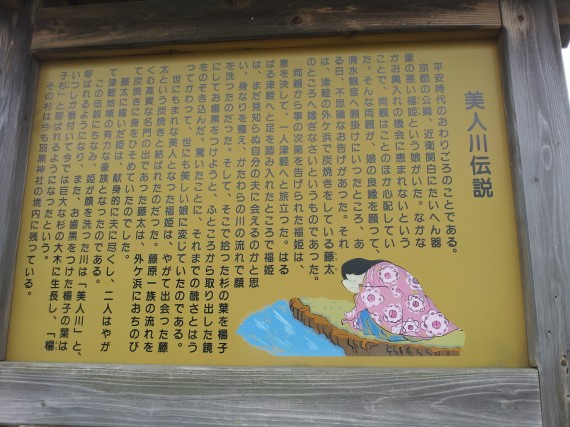 美人川伝説
平安時代のおわりごろのことである。
京都の公卿、近衛関白にたいへん器
量の悪い福姫という娘がいた。なかな
かお輿入れの機会に恵まれないという
ことで、両親はことのほか心配してい
た。そんな両親が、娘の良縁を願って、
清水観音へ願掛けにいったところ、あ
る日、不思議なお告げがあった。それ
は、津軽の外ケ浜で炭焼きをしている藤太
のところへ嫁ぎなさいというものであった。
両親から事の次第を告げられた福姫は、
意を決して、一人津軽へと旅立った。はる
ばる津軽へと足を踏み入れたところで福姫
は、まだ見知らぬ自分の夫に会えるのかと思
い、身なりを整え、かたわらの川の流れで顔
を洗ったのだった。そして、そこで拾った杉の葉を楊子
にしてお歯黒をつけようと、ふところから取り出した鏡
をのぞき込んだ。驚いたことに、それまでの醜さとはう
ってかわって、世にも美しい娘に変じていたのである。
世にもまれな美人となった福姫は、やがて出会った藤
太という炭焼きと結ばれたのだった。藤原一族の流れを
くむ高貴な名門の出であった藤太は、外ケ浜におちのび
て炭焼きに身をひそめていたのでした。
藤太に嫁いだ姫は、献身的に夫に尽くし、二人はやが
て津軽地域の有力な豪族となったのである。
この伝説にちなみ、姫が顔を洗った川は「美人川」と、
呼ばれるようになり、また、お歯黒をつけた楊子の葉は
いつしか根付いて今では巨大な杉の大木に生長し、「楊
子杉」と呼ばれるようになったという。
その杉は今も羽黒神社の境内に残っている。